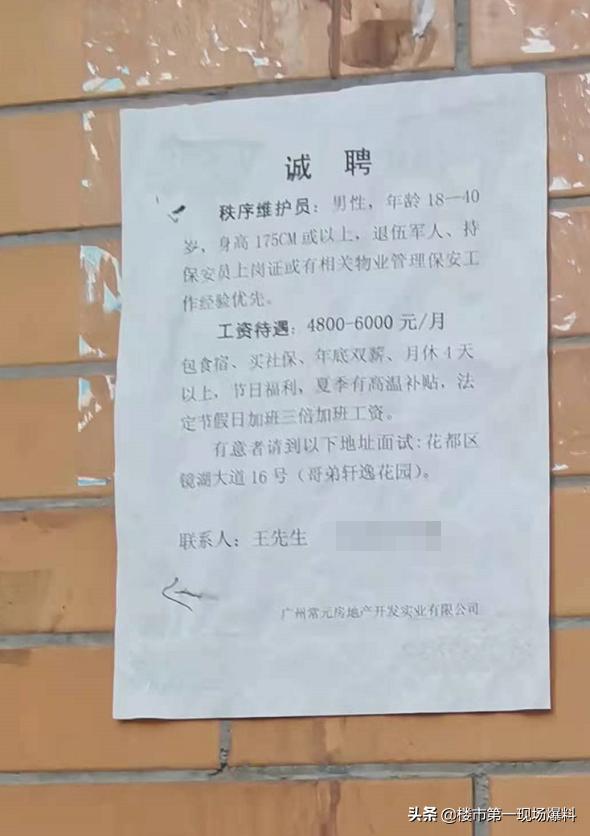 诚 聘
秩序维护员：男性，年龄 18—40
岁、身高 175CM 或以上，退伍军人、持
保安员上岗证或有相关物业管理保安工
作经验优先。
工资待遇：4800-6000 元/月
包食宿、买社保、年底双薪、月休 4 天
以上，节日福利，夏季有高温补贴，法
定节假日加班三倍加班工资。
有意者请到以下地址面试：花都区
镜湖大道 16 号（哥弟轩逸花园）。
联系人：王先生
广州常元房地产开发实业有限公司
头条 @楼市第一现场爆料